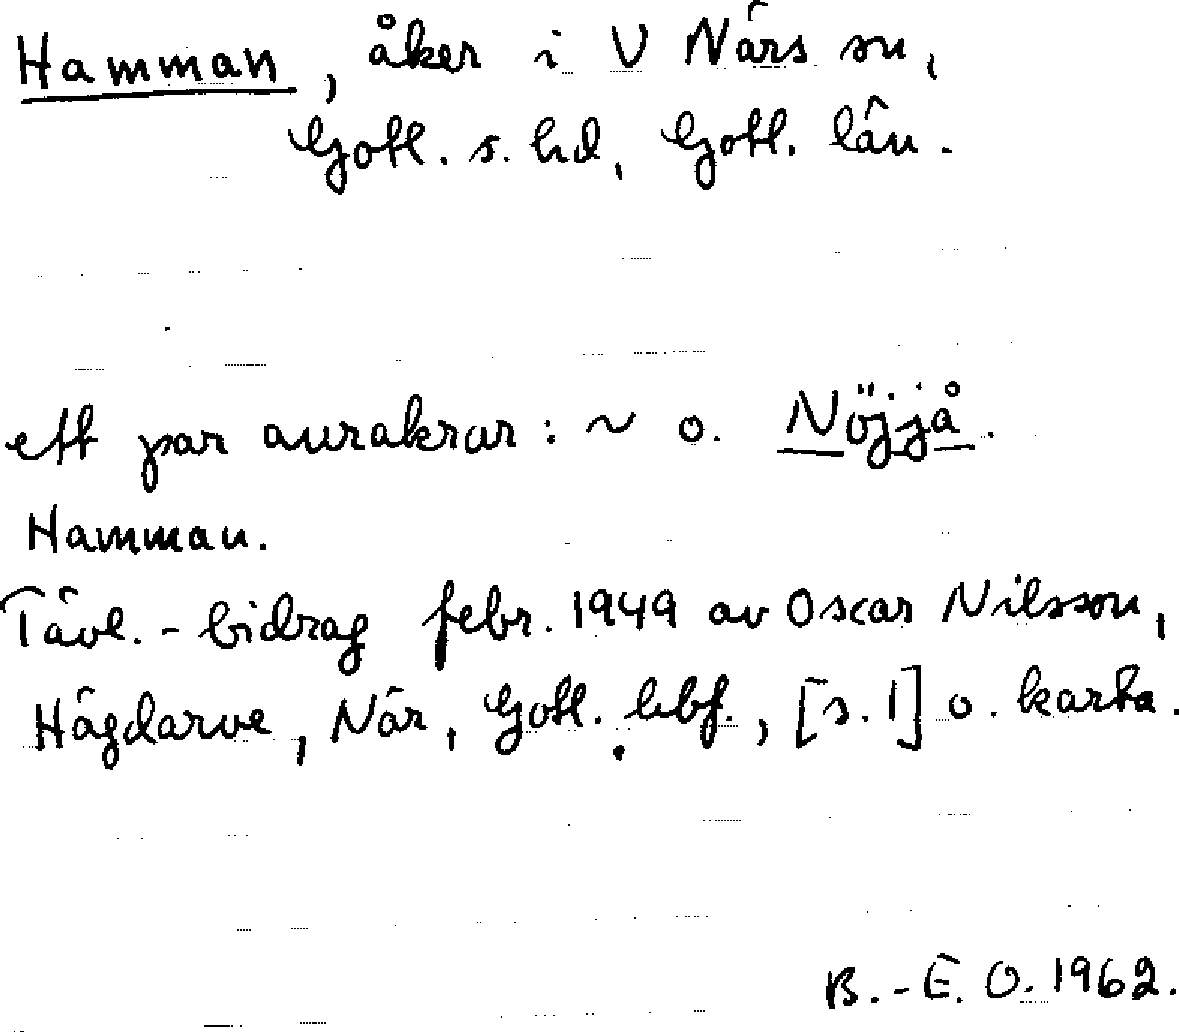 Hamman, åker i V Närs sn,
Gotl. s. hd, Gotl. län.
ett par aurakrar: ~ o. Nöjjå.
Hamman.
Tävl.-bidrag febr. 1949 av Oscar Nilsson,
Hägdarve, När, Gotl. lbf., [s. 1] o. karta.
B.-E. O. 1962.